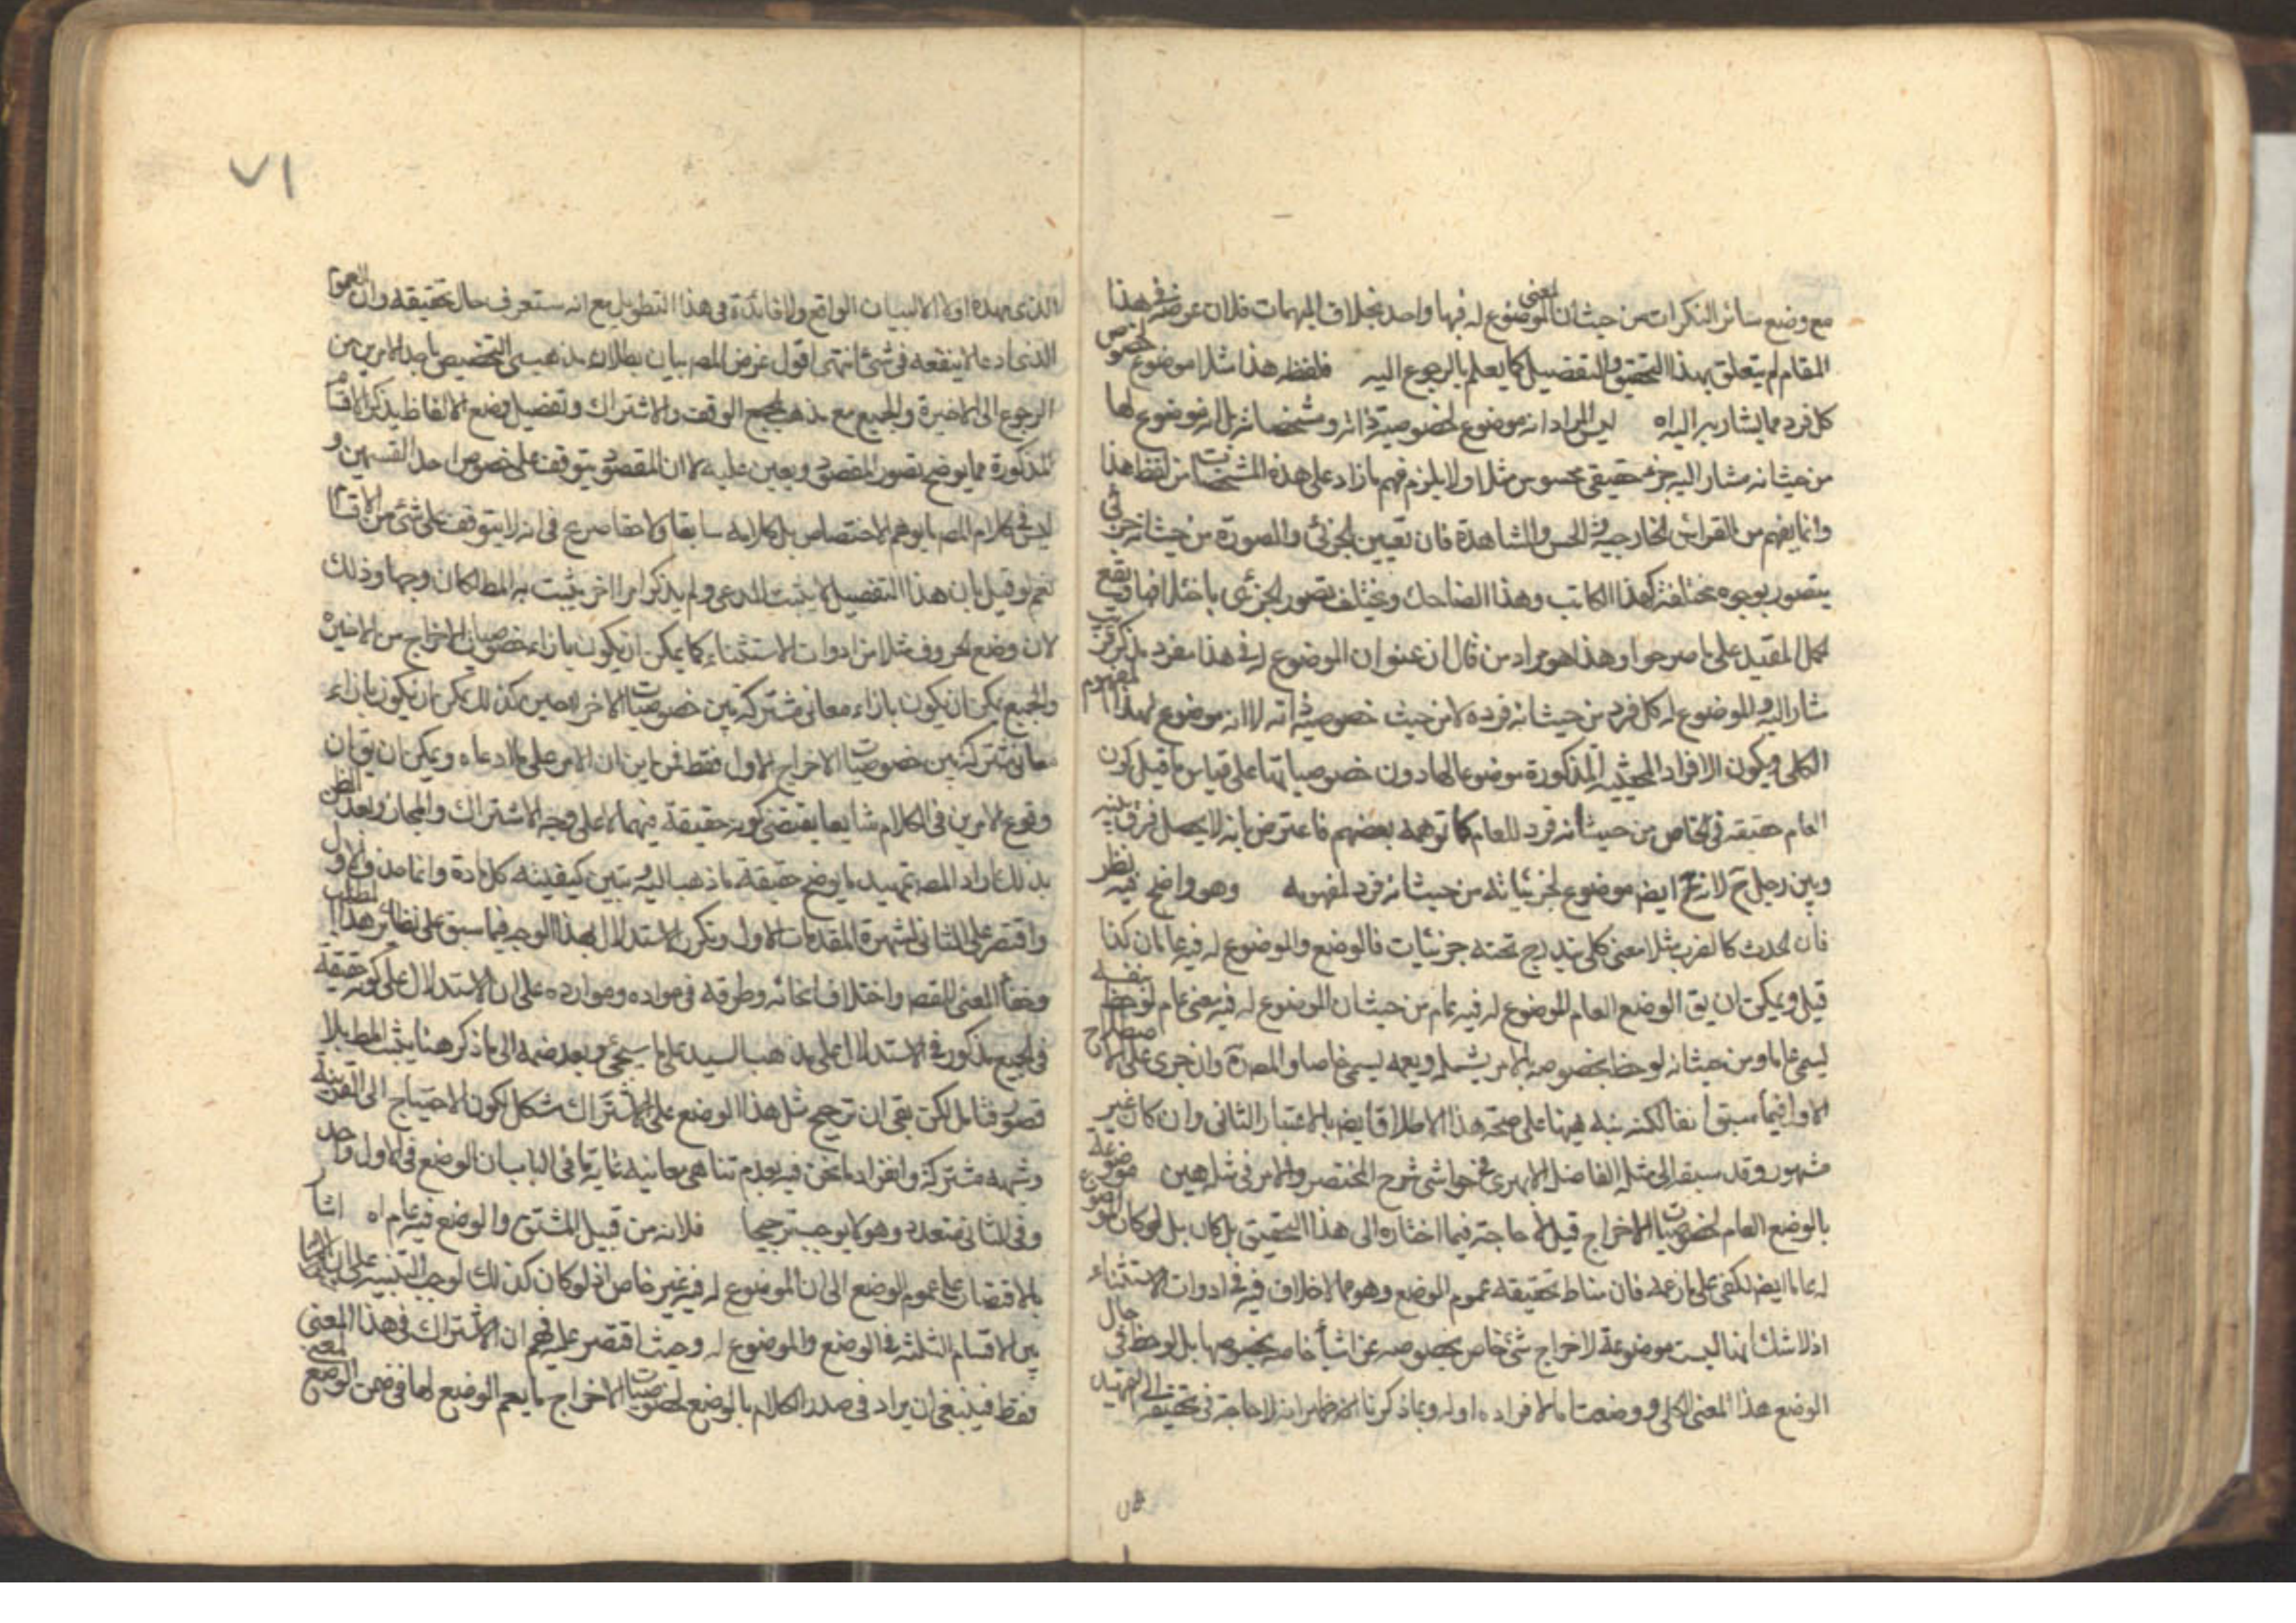 مع وضع سائر النكرات من حيث ان المعنى الموضوع له فيها واحد بخلاف المبهمات فلان غرضه في هذا
المقام لم يتعلق بهذا التحقيق والتفصيل كما يعلم بالرجوع اليه فلفظ هذا مثلا موضوع لخصوص
كل فرد مما يشار به اليه اه ليس المراد انه موضوع لخصوصية ذاته ومشخصاته بل انه موضوع لها
من حيث انه مشار اليه جزئى حقيقى محسوس مثلا ولا يلزم فهم ما زاد على هذه المشخصات من لفظ هذا
وانما يفهم من القرائن الخارجية والحس والمشاهدة فان تعيين الجزئى والصورة من حيث انه جزئى
يتصور بوجوه مختلفة كهذا الكاتب وهذا الضاحك ويختلف تصور الجزئى باختلافها ويقع
الحمل المقيد على ما صرحوا وهذا هو مراد من قال ان عنوان الموضوع له في هذا مفرد مذكر قريب
مشار اليه والموضوع له كل فرد من حيث انه فرده لا من حيث خصوصية ذاته لا انه موضوع لهذا المفهوم
الكلى ويكون الافراد المحيثية المذكورة موضوعا لها دون خصوصياتها على قياس ما قيل كون
العام حقيقة في الخاص من حيث انه فرد للعام كما توهمه بعضهم فاعترض بانه لا يحصل فرق بينه
وبين رجل ح لانه ح ايض موضوع لجزئياته من حيث انه فرد لمفهومه وهو واضح فيه نظر
فان الحدث كالضرب مثلا معنى كلى يندرج تحته جزئيات فالوضع والموضوع له فيه عامان كذا
قيل ويمكن ان يق الوضع العام للموضوع له فيه عام من حيث ان الموضوع له فيه معنى عام لوحظ بنفسه
يسمى عاما ومن حيث انه لوحظ بخصوصه بامر يشمله ويعمه يسمى خاصا والمص ره وان جرى على الاصطلاح
الاول فيما سبق انفا لكنه نبه ههنا على صحة هذا الاطلاق ايض بالاعتبار الثانى وان كان غير
مشهور وقد سبقه الى مثله الفاضل الابهرى في حواشى شرح المختصر والامر في مثله هين موضوعة
بالوضع العام لخصوصيات الاخراج قيل لا حاجة فيما اختاره الى هذا التحقيق بل كان بل لو كان الموضوع
له عاما ايض لكفى على ما زعمه فان مناط تحقيقه عموم الوضع وهو مما لا خلاف فيه في ادوات الاستثناء
اذ لا شك انها ليست موضوعة لاخراج شئ خاص بخصوصه عن اشياء خاصة بخصوصها بل لوحظ في حال
الوضع هذا المعنى الكلى ووضعت اما لافراده او له وبما ذكرنا الان ظهر انه لا حاجة في تحقيقه الى التمهيد
٧١
الذى مهده اولا الا لبيان الواقع ولا فائدة في هذا التطويل مع انه ستعرف حال تحقيقه وان العموم
الذى ادعاه لا ينفعه في شئ انتهى اقول غرض المص بيان بطلان مذهبى التخصيص باحد الامرين من
الرجوع الى الاخيرة والجميع مع مذهبى الوقف والاشتراك وتفصيل وضع الالفاظ بذكر الاقسام
المذكورة مما يوضح تصور المقصود ويعين عليه لا ان المقصود يتوقف على خصوص احد القسمين و
ليس في كلام المص ما يوهم الاختصاص بل كلامه سابقا ولاحقا صريح في انه لا يتوقف على شئ من الاقسام
نعم لو قيل بان هذا التفصيل لا يثبت المدعى ولم يذكر امرا اخر يثبت به المط لكان وجها وذلك
لان وضع الحروف مثلا من ادوات الاستثناء كما يمكن ان يكون بازاء خصوصيات الاخراج من الاخيرة
والجميع يمكن ان يكون بازاء معانى مشتركة بين خصوصيات الاخراجين كذلك يمكن ان يكون بازاء
معانى مشتركة بين خصوصيات الاخراج الاول فقط فمن اين ان الامر على ما ادعاه ويمكن ان يق ان
وقوع الامرين في الكلام شايعا يقتضى كونه حقيقة فيهما لا على وجه الاشتراك والمجاز وبعد الظن
بذلك اراد المص تمهيد ما يوضح حقيقة ما ذهب اليه وتبين كيفيته كل مادة وانما حذف الاول و
واقتصر على الثانى لشهرة المقدمات الاول وتكرر الاستدلال بهذا الوجه فيما سبق على نظائر هذا المطلب
وخفاء المعنى المقص واختلاف انحائه وطرقه في مواده وموارده على ان الاستدلال على كونه حقيقة
في الجميع مذكور في الاستدلال على مذهب السيد على ما سيجئ وبعد ضمه الى ما ذكر هنا يثبت المط بلا
قصور فتامل لكن بقى ان ترجيح مثل هذا الوضع على الاشتراك مشكل لكون الاحتياج الى القرينة
وشبهه مشتركة وانفراد ما نحن فيه بعدم تناهى معانيه غاية ما في الباب ان الوضع في الاول واحد
وفي الثانى متعدد وهو لا يوجب ترجيحا فلانه من قبيل المشتق والوضع فيه عام اه اشار
بالاقتصار على عموم الوضع الى ان الموضوع له فيه غير خاص اذ لو كان كذلك لوجب التنبيه على
بين الاقسام الثلثة في الوضع والموضوع له وحيث اقتصر عليه فهم ان الاشتراك في هذا المعنى
فقط فينبغى ان يراد في صدر الكلام بالوضع لخصوصيات الاخراج ما يعم الوضع لها في ضمن الوضع لمعنى